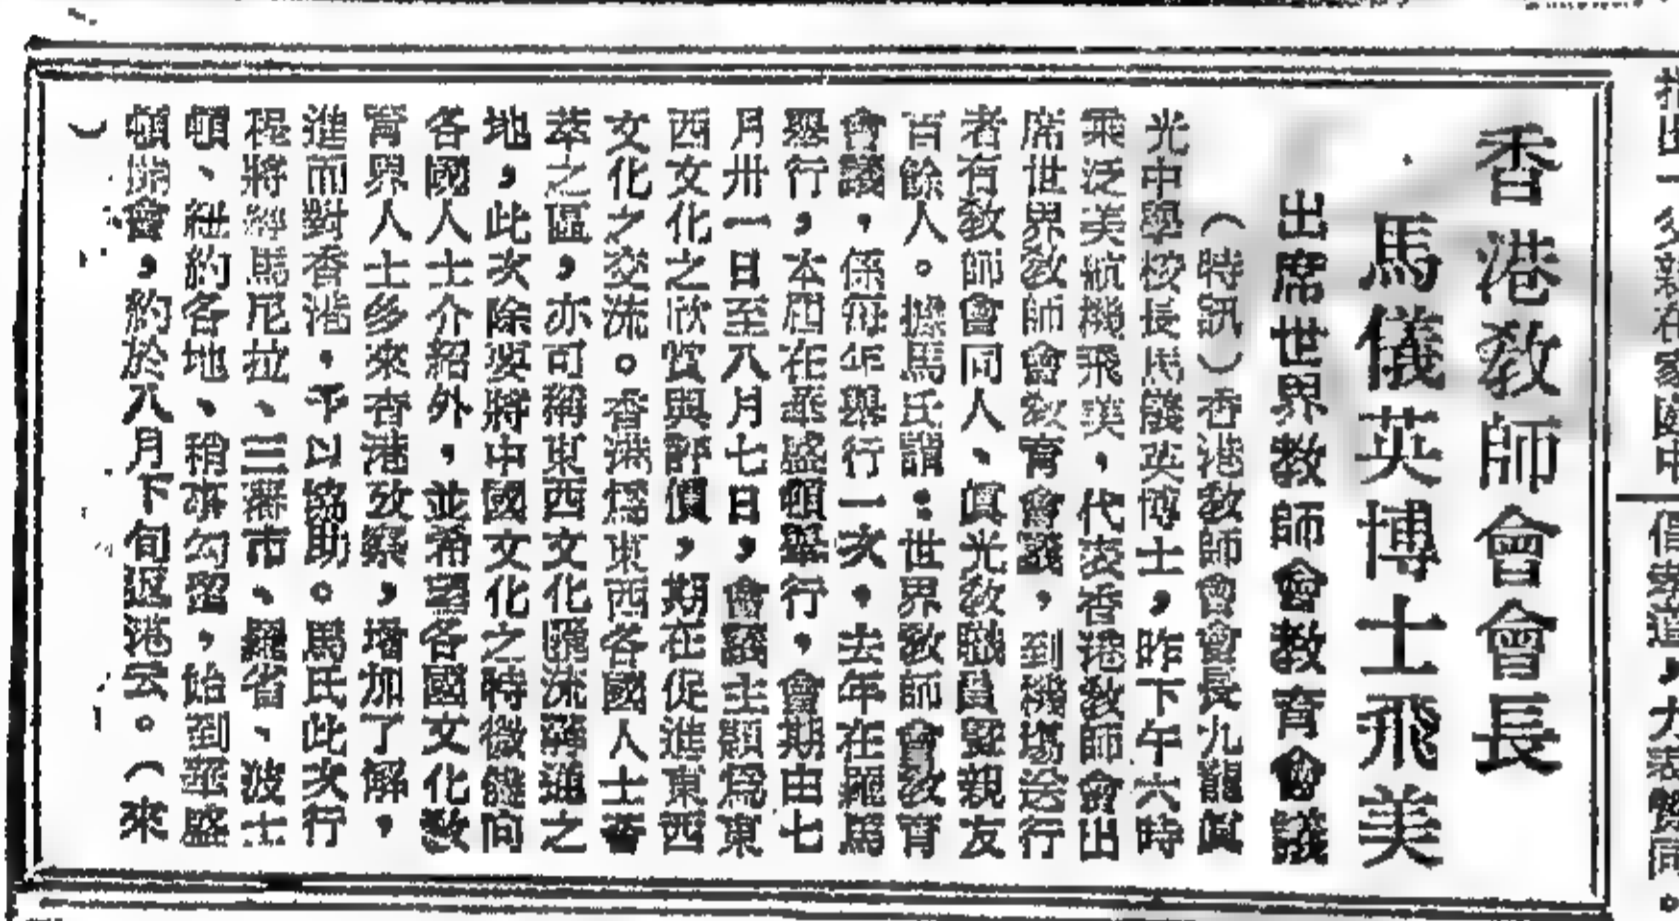 香港教師會會長
馬儀英博士飛美
出席世界教師會教育會議
（特訊）香港教師會會長九龍眞
光中學校長馬儀英博士，昨下午六時
乘泛美航機飛美，代表香港教師會出
席世界教師會教育會議，到機塲送行
者有教師會同人、眞光教職員暨親友
百餘人。據馬氏謂：世界教師會教育
會議，係每年舉行一次，去年在羅馬
舉行，本屆在華盛頓舉行，會期由七
月卅一日至八月七日，會議主題爲東
西文化之欣賞與評價，期在促進東西
文化之交流。香港爲東西各國人士薈
萃之區，亦可稱東西文化匯流孳進之
地，此次除要將中國文化之特徵儘向
各國人士介紹外，並希望各國文化教
育界人士多來香港攷察，增加了解，
進而對香港，予以協助。馬氏此次行
程將經馬尼拉、三藩市、羅省、波士
頓、紐約各地、稍事勾留，始到華盛
頓開會，約於八月下旬返港云。（來
）